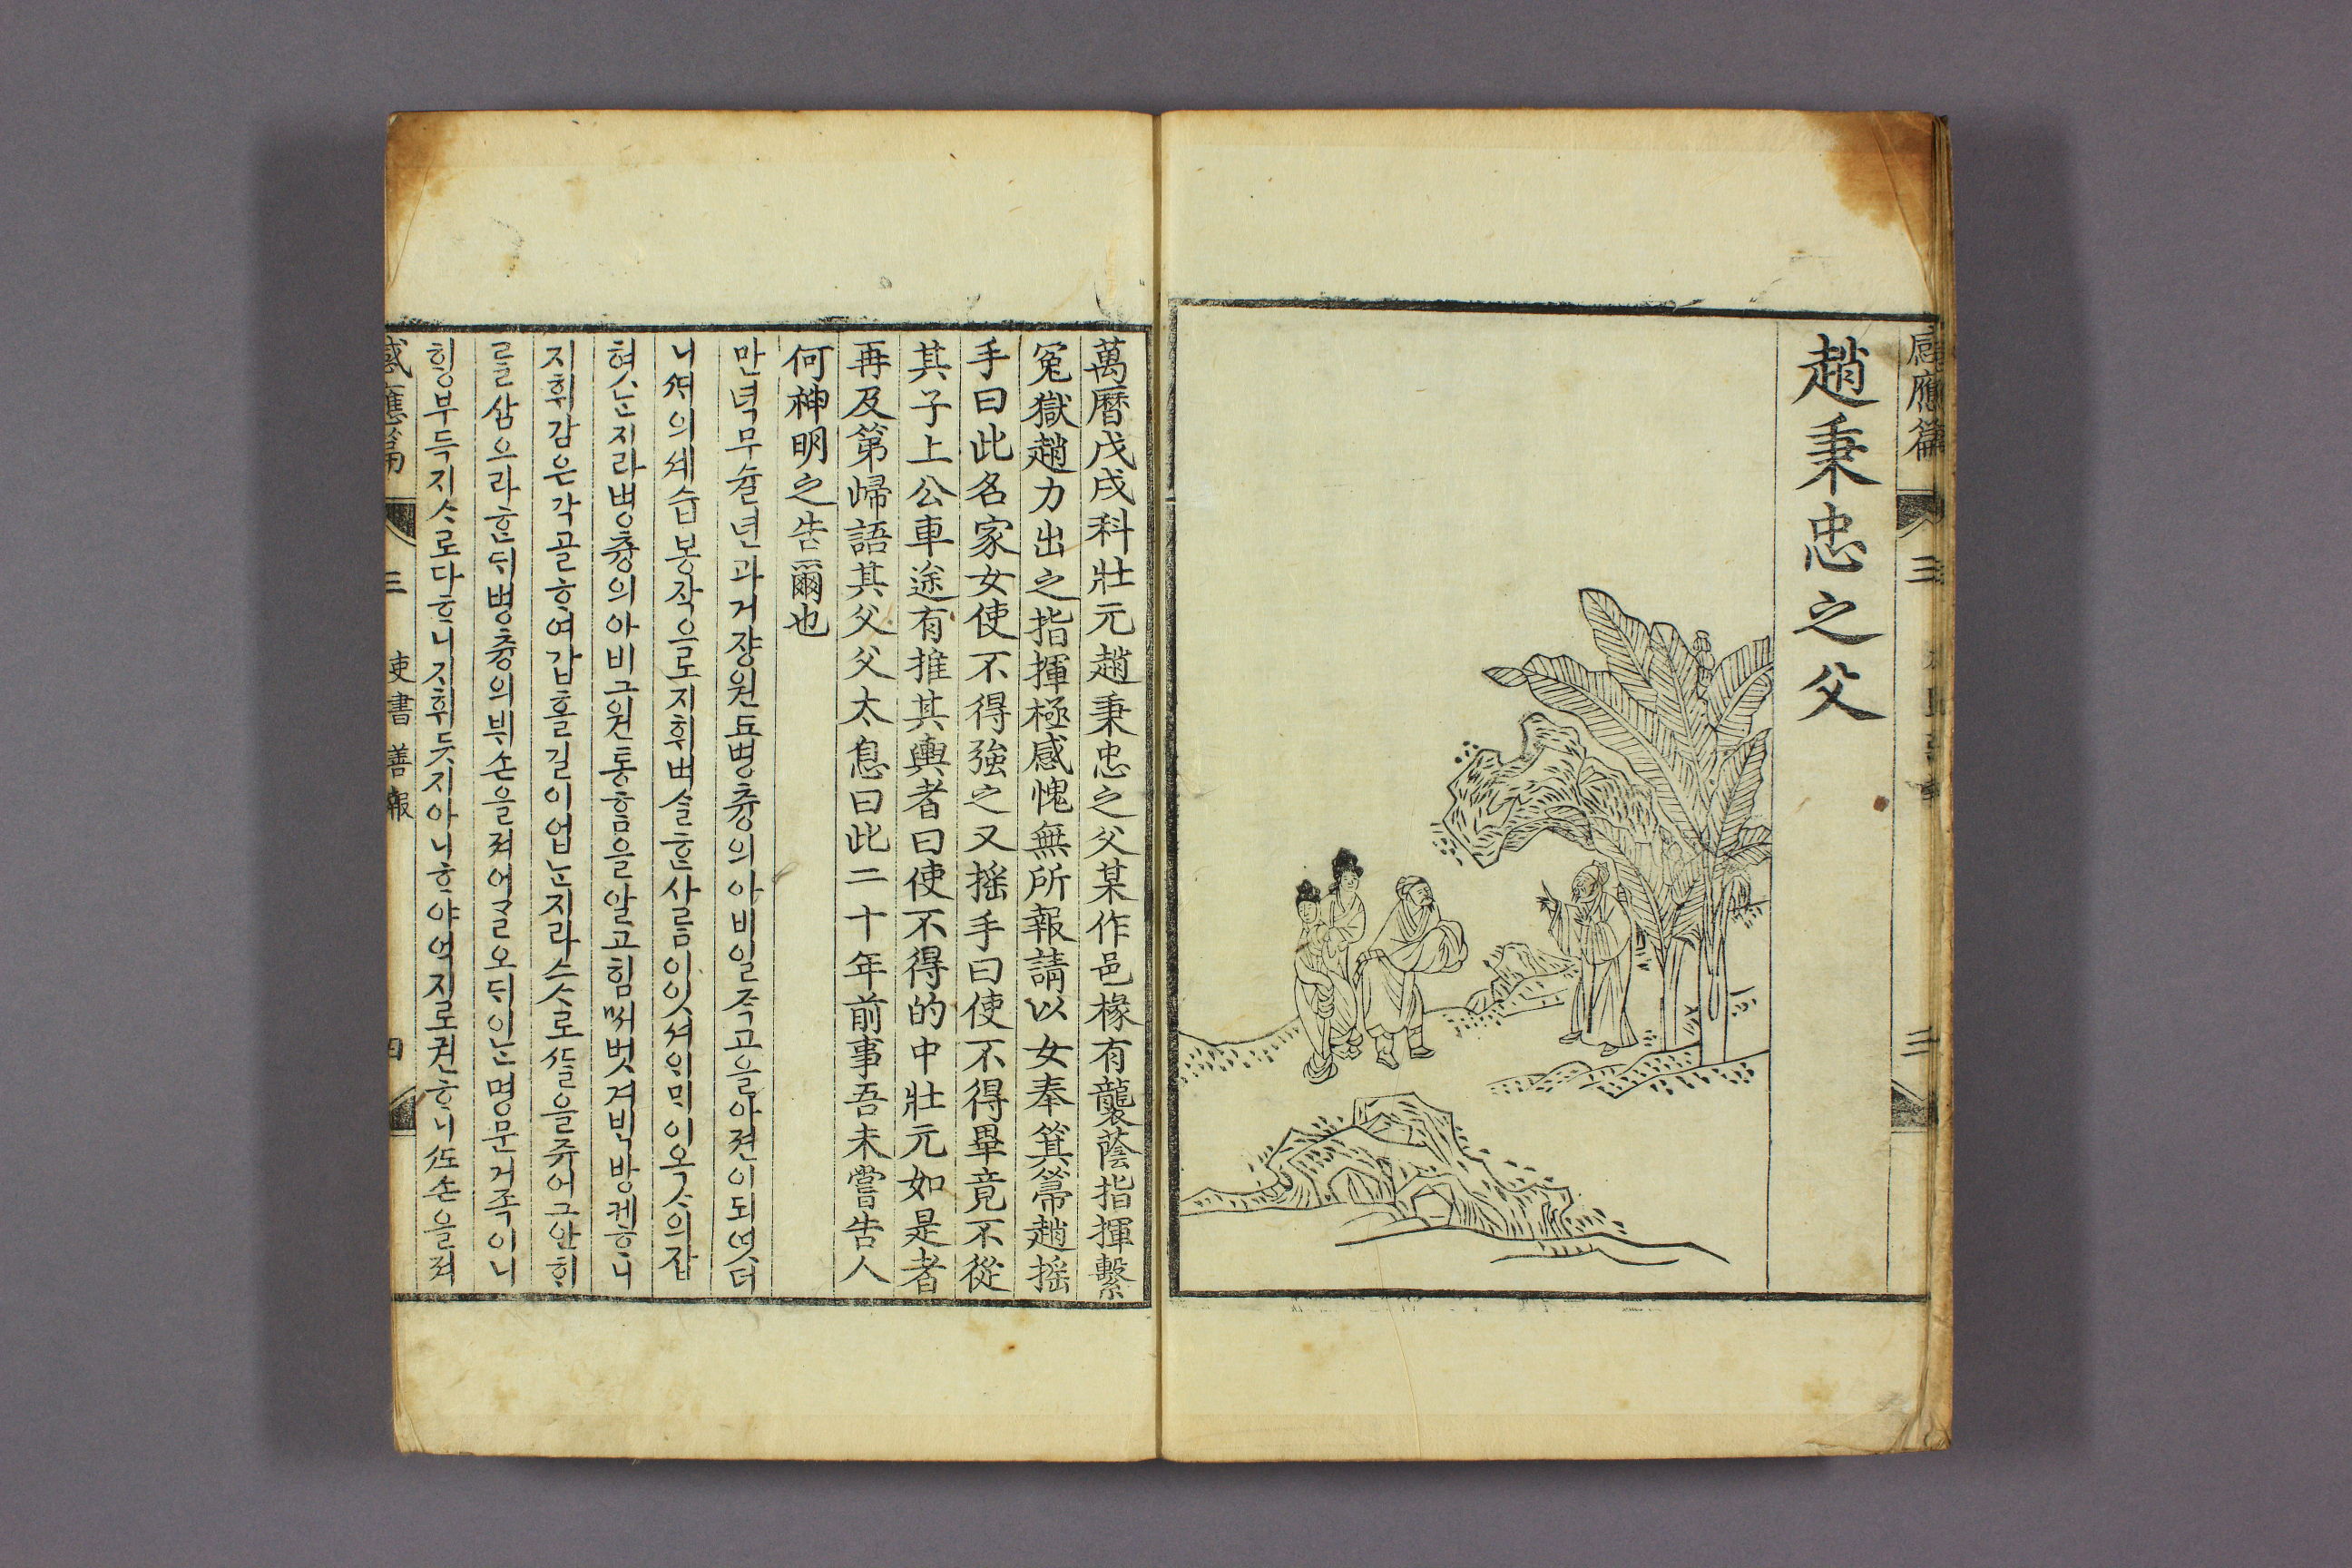 感應篇 三 三
趙秉忠之父
萬曆戊戌科壯元趙秉忠之父某作邑椽有襲蔭指揮繫
冤獄趙力出之指揮極感愧無所報請以女奉箕箒趙搖
手曰此名家女使不得強之又搖手曰使不得畢竟不從
其子上公車途有推其輿者曰使不得的中壯元如是者
再及第歸語其父父太息曰此二十年前事吾未嘗告人
何神明之告爾也
만녁무슐년과거쟝원됴병츙의아비일즉고을아젼이되엿더
니셔의셰습봉작으로지휘벼슬ᄒᆞᆫ사ᄅᆞᆷ이잇셔ᄋᆡᄆᆡ이옥ᄉᆞ의잡
혓ᄂᆞᆫ지라병츙의아비그원통ᄒᆞᆷ을알고힘ᄡᅥ벗겨ᄇᆡᆨ방케ᄒᆞ니
지휘감은각골ᄒᆞ여갑홀길이업ᄂᆞᆫ지라스ᄉᆞ로ᄯᆞᆯ을쥬어그안ᄒᆡ
ᄅᆞᆯ삼으라ᄒᆞᆫᄃᆡ병츙의뷔손을져어ᄀᆞᆯ오ᄃᆡ이ᄂᆞᆫ명문거족이니
ᄒᆡᆼ부득지ᄉᆞ로다ᄒᆞ니지휘듯지아니ᄒᆞ야억지로권ᄒᆞ니ᄯᅩ손을져
感應篇 三 吏書善報 四